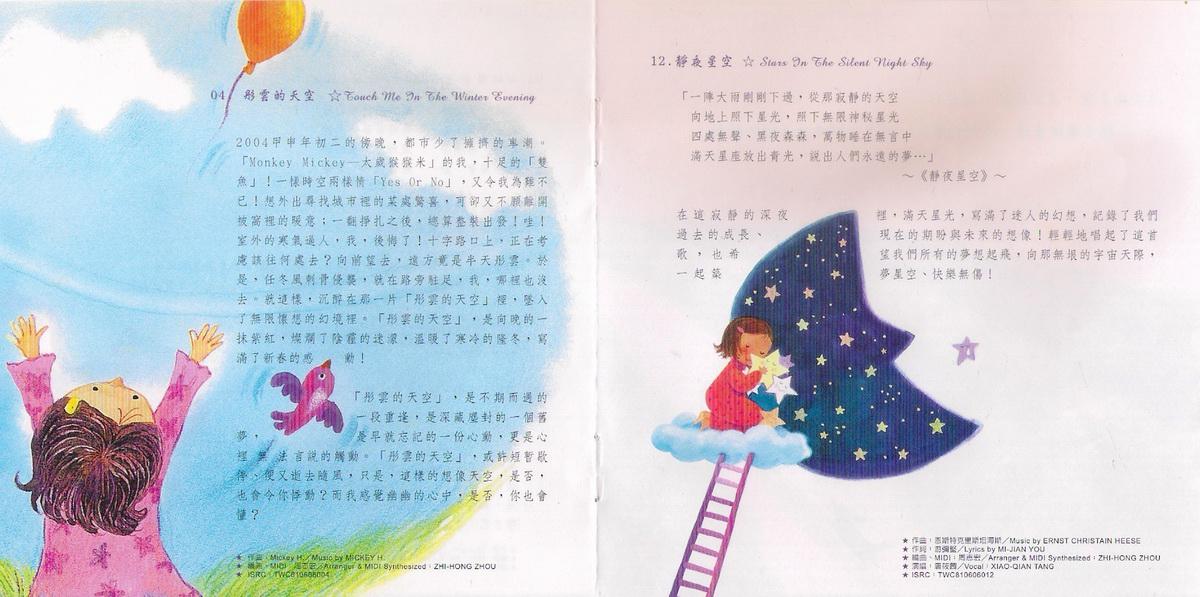 04 彤雲的天空 ☆Touch Me In The Winter Evening
2004甲申年初二的傍晚，都市少了擁擠的車潮。
「Monkey Mickey—太歲猴猴米」的我，十足的「雙
魚」！一樣時空兩樣情「Yes Or No」，又令我為難不
已！想外出尋找城市裡的某處驚喜，可卻又不願離開
被窩裡的暖意；一翻掙扎之後，總算整裝出發！哇！
室外的寒氣逼人，我，後悔了！十字路口上，正在考
慮該往何處去？向前望去，遠方竟是半天彤雲。於
是，任冬風刺骨侵襲，就在路旁駐足，我，哪裡也沒
去。就這樣，沉醉在那一片「彤雲的天空」裡，墜入
了無限懷想的幻境裡。「彤雲的天空」，是向晚的一
抹紫紅，燦爛了陰霾的迷濛，溫暖了寒冷的隆冬，寫
滿了新春的感 動！
「彤雲的天空」，是不期而遇的
一段重逢，是深藏塵封的一個舊
夢， 是早就忘記的一份心動，更是心
裡無法言說的觸動。「彤雲的天空」，或許短暫歇
停、便又逝去隨風，只是，這樣的想像天空，是否，
也會令你悸動？而我感覺幽幽的心中，是否，你也會
懂？
★ 作曲：Mickey H.／Music by MICKEY H.
★ 編曲、MIDI：周志宏／Arranger & MIDI Synthesized：ZHI-HONG ZHOU
★ ISRC：TWC810606004
12.靜夜星空 ☆ Stars In The Silent Night Sky
「一陣大雨剛剛下過，從那寂靜的天空
向地上照下星光，照下無限神秘星光
四處無聲、黑夜森森，萬物睡在無言中
滿天星座放出青光，說出人們永遠的夢…」
～《靜夜星空》～
在這寂靜的深夜裡，滿天星光，寫滿了迷人的幻想，記錄了我們
過去的成長、現在的期盼與未來的想像！輕輕地唱起了這首
歌，也希望我們所有的夢想起飛，向那無垠的宇宙天際，
一起築夢星空、快樂無傷！
★ 作曲：恩斯特克里斯坦海斯／Music by ERNST CHRISTAIN HEESE
★ 作詞：游彌堅／Lyrics by MI-JIAN YOU
★ 編曲、MIDI：周志宏／Arranger & MIDI Synthesized：ZHI-HONG ZHOU
★ 演唱：唐筱茜／Vocal：XIAO-QIAN TANG
★ ISRC：TWC810606012